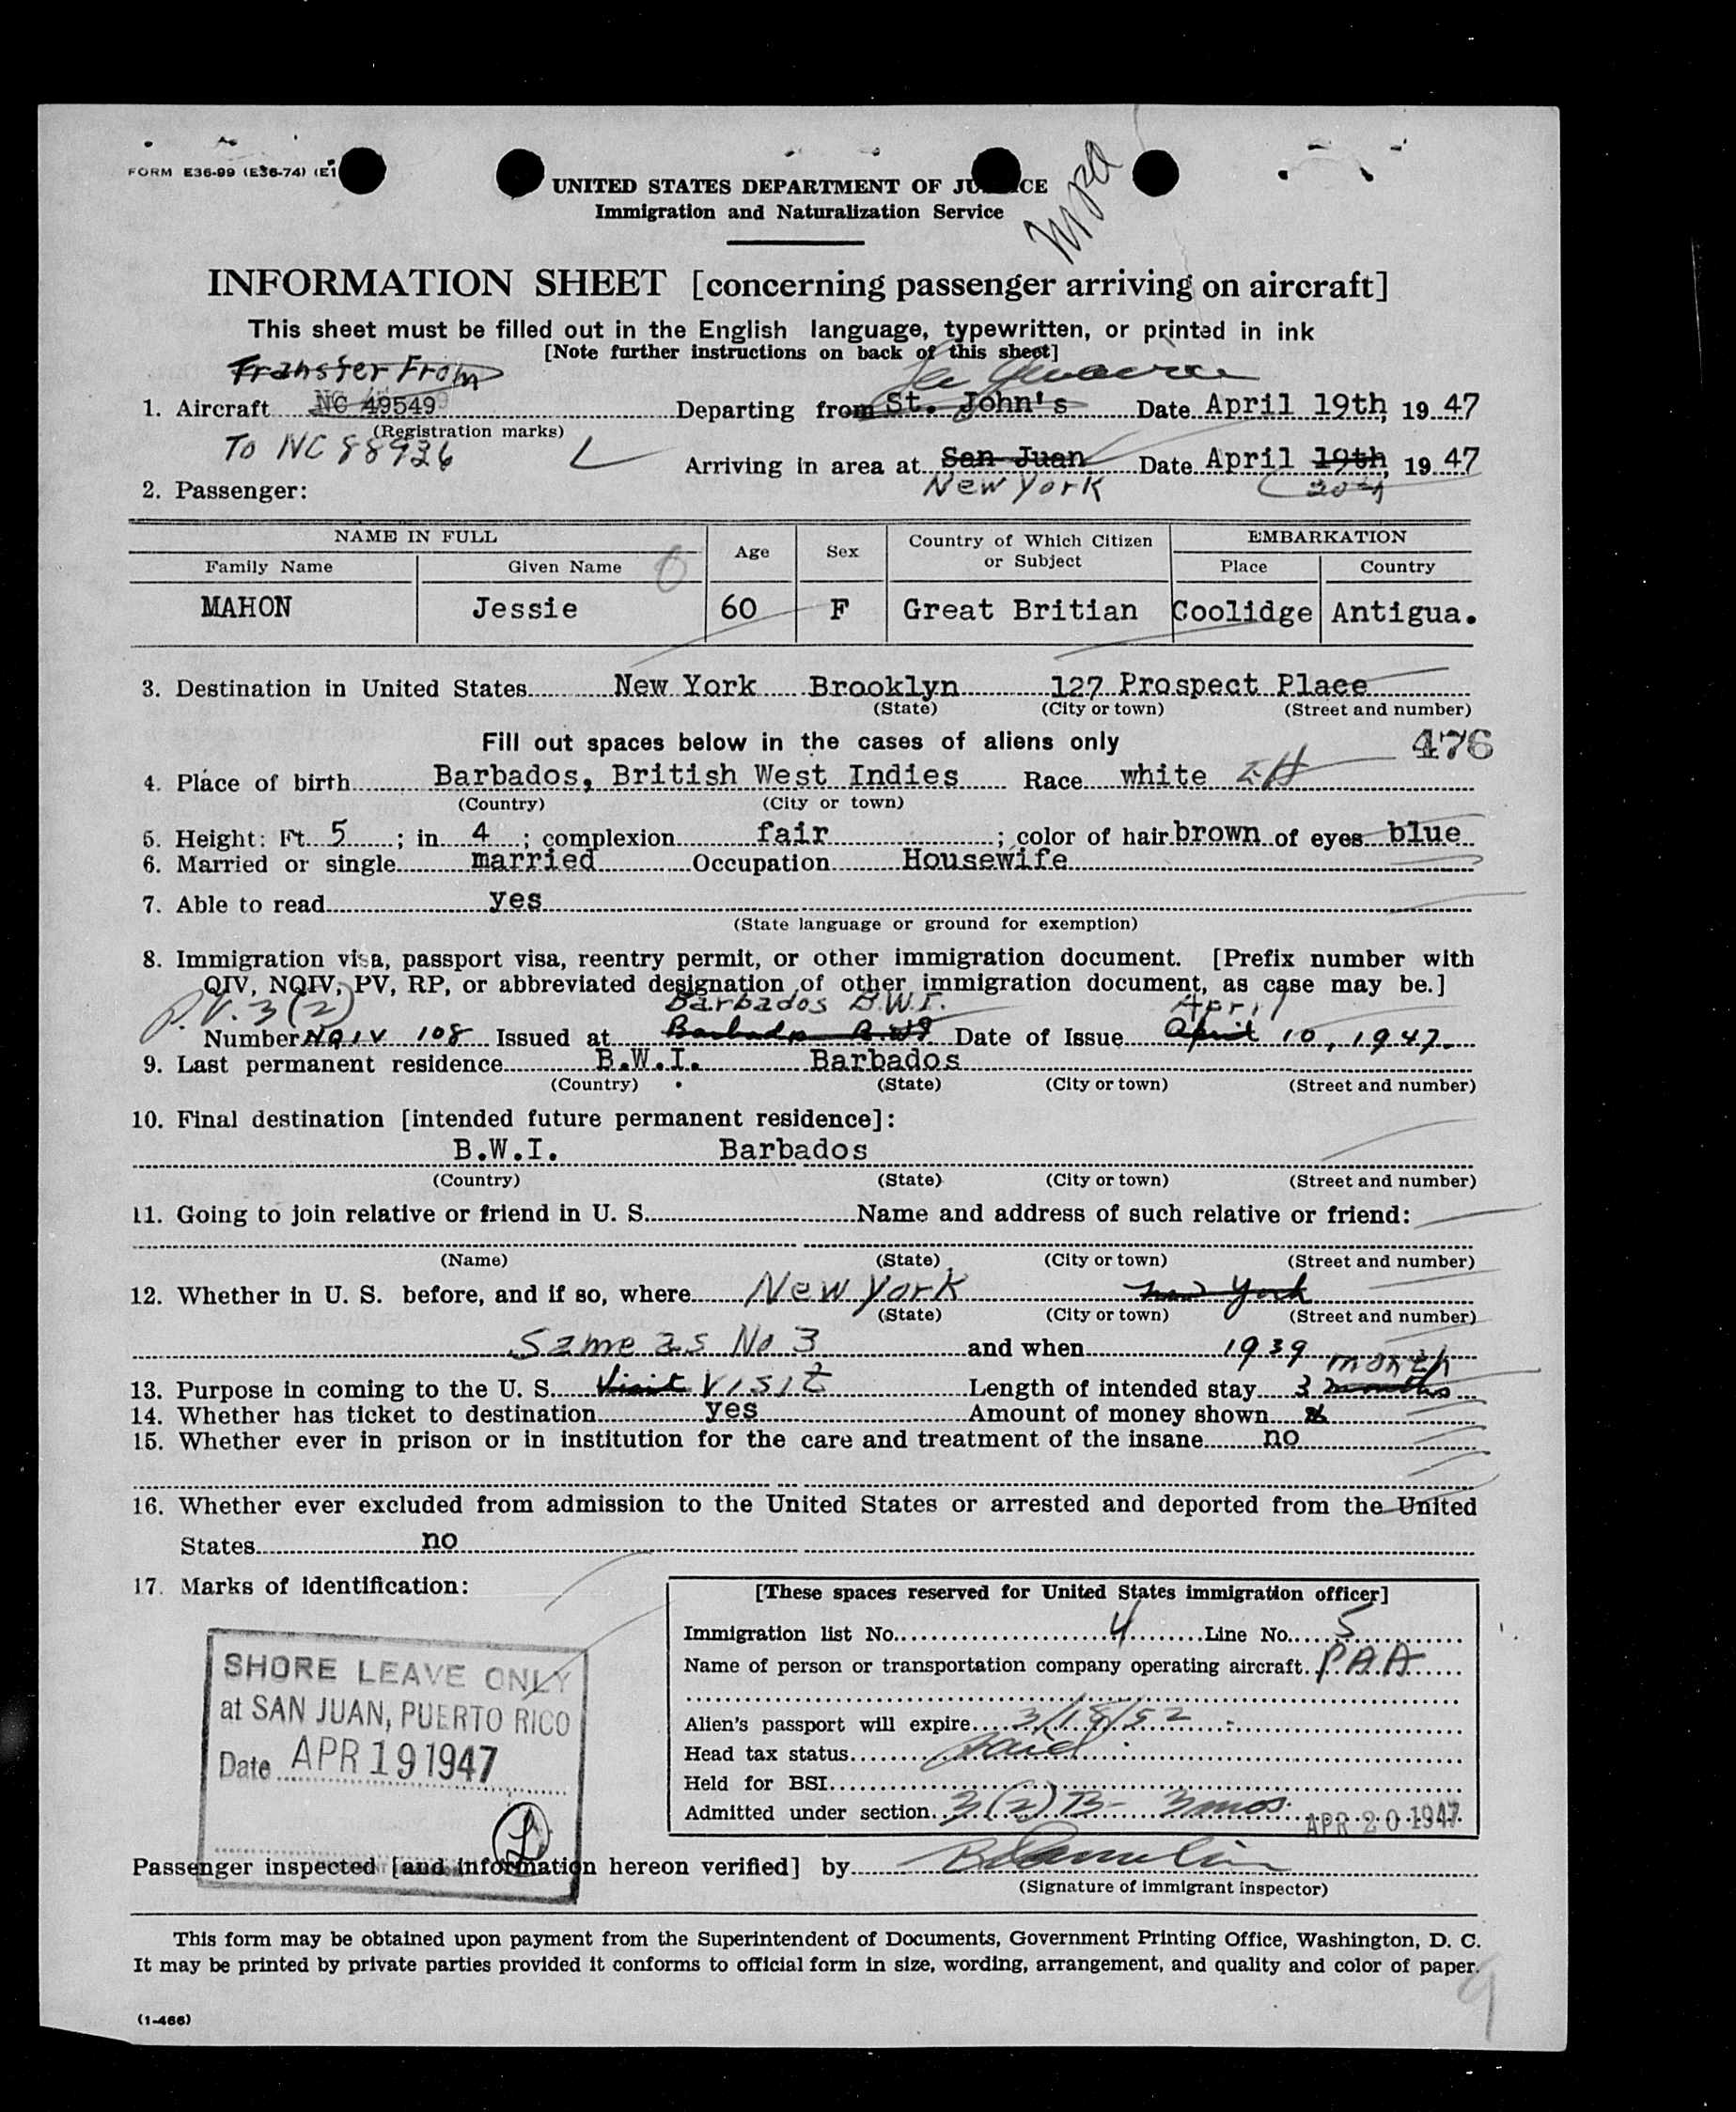 FORM E36-99 (E36-74) (E1
UNITED STATES DEPARTMENT OF JU CE
Immigration and Naturalization Service
INFORMATION SHEET [concerning passenger arriving on aircraft]
This sheet must be filled out in the English language, typewritten, or printed in ink
[Note further instructions on back of this sheet]
Transfer From
1. Aircraft NC 49549 Departing from St. John's Date April 19th, 19 47
(Registration marks)
To NC 88926
Arriving in area at San Juan Date April 19th, 19 47
New York 20th
2. Passenger:
NAME IN FULL Age Sex Country of Which Citizen or Subject EMBARKATION
Family Name Given Name Place Country
MAHON Jessie 60 F Great Britian Coolidge Antigua.
3. Destination in United States New York Brooklyn 127 Prospect Place
(State) (City or town) (Street and number)
Fill out spaces below in the cases of aliens only 476
4. Place of birth Barbados, British West Indies Race white
(Country) (City or town)
5. Height: Ft. 5 ; in. 4 ; complexion fair ; color of hair brown of eyes blue
6. Married or single married Occupation Housewife
7. Able to read yes
(State language or ground for exemption)
8. Immigration visa, passport visa, reentry permit, or other immigration document. [Prefix number with
QIV, NQIV, PV, RP, or abbreviated designation of other immigration document, as case may be.]
P.V. 3(2) Barbados B.W.I. April
Number NQIV 108 Issued at Barbados B.WI Date of Issue April 10, 1947
9. Last permanent residence B.W.I. Barbados
(Country) (State) (City or town) (Street and number)
10. Final destination [intended future permanent residence]:
B.W.I. Barbados
(Country) (State) (City or town) (Street and number)
11. Going to join relative or friend in U. S. Name and address of such relative or friend:
(Name) (State) (City or town) (Street and number)
12. Whether in U. S. before, and if so, where New York New York
(State) (City or town) (Street and number)
Same as No 3 and when 1939
month
13. Purpose in coming to the U. S. Visit Visit Length of intended stay 3 months
14. Whether has ticket to destination yes Amount of money shown
15. Whether ever in prison or in institution for the care and treatment of the insane no
16. Whether ever excluded from admission to the United States or arrested and deported from the United
States no
17. Marks of identification:
[These spaces reserved for United States immigration officer]
Immigration list No. 4 Line No. 5
Name of person or transportation company operating aircraft. PAA
Alien's passport will expire 3/18/52
Head tax status paid
Held for BSI
Admitted under section 3(2)B- 3mos. APR 20 1947
SHORE LEAVE ONLY
at SAN JUAN, PUERTO RICO
Date APR 19 1947
Passenger inspected [and information hereon verified] by
(Signature of immigrant inspector)
This form may be obtained upon payment from the Superintendent of Documents, Government Printing Office, Washington, D. C.
It may be printed by private parties provided it conforms to official form in size, wording, arrangement, and quality and color of paper.
9
(1-466)